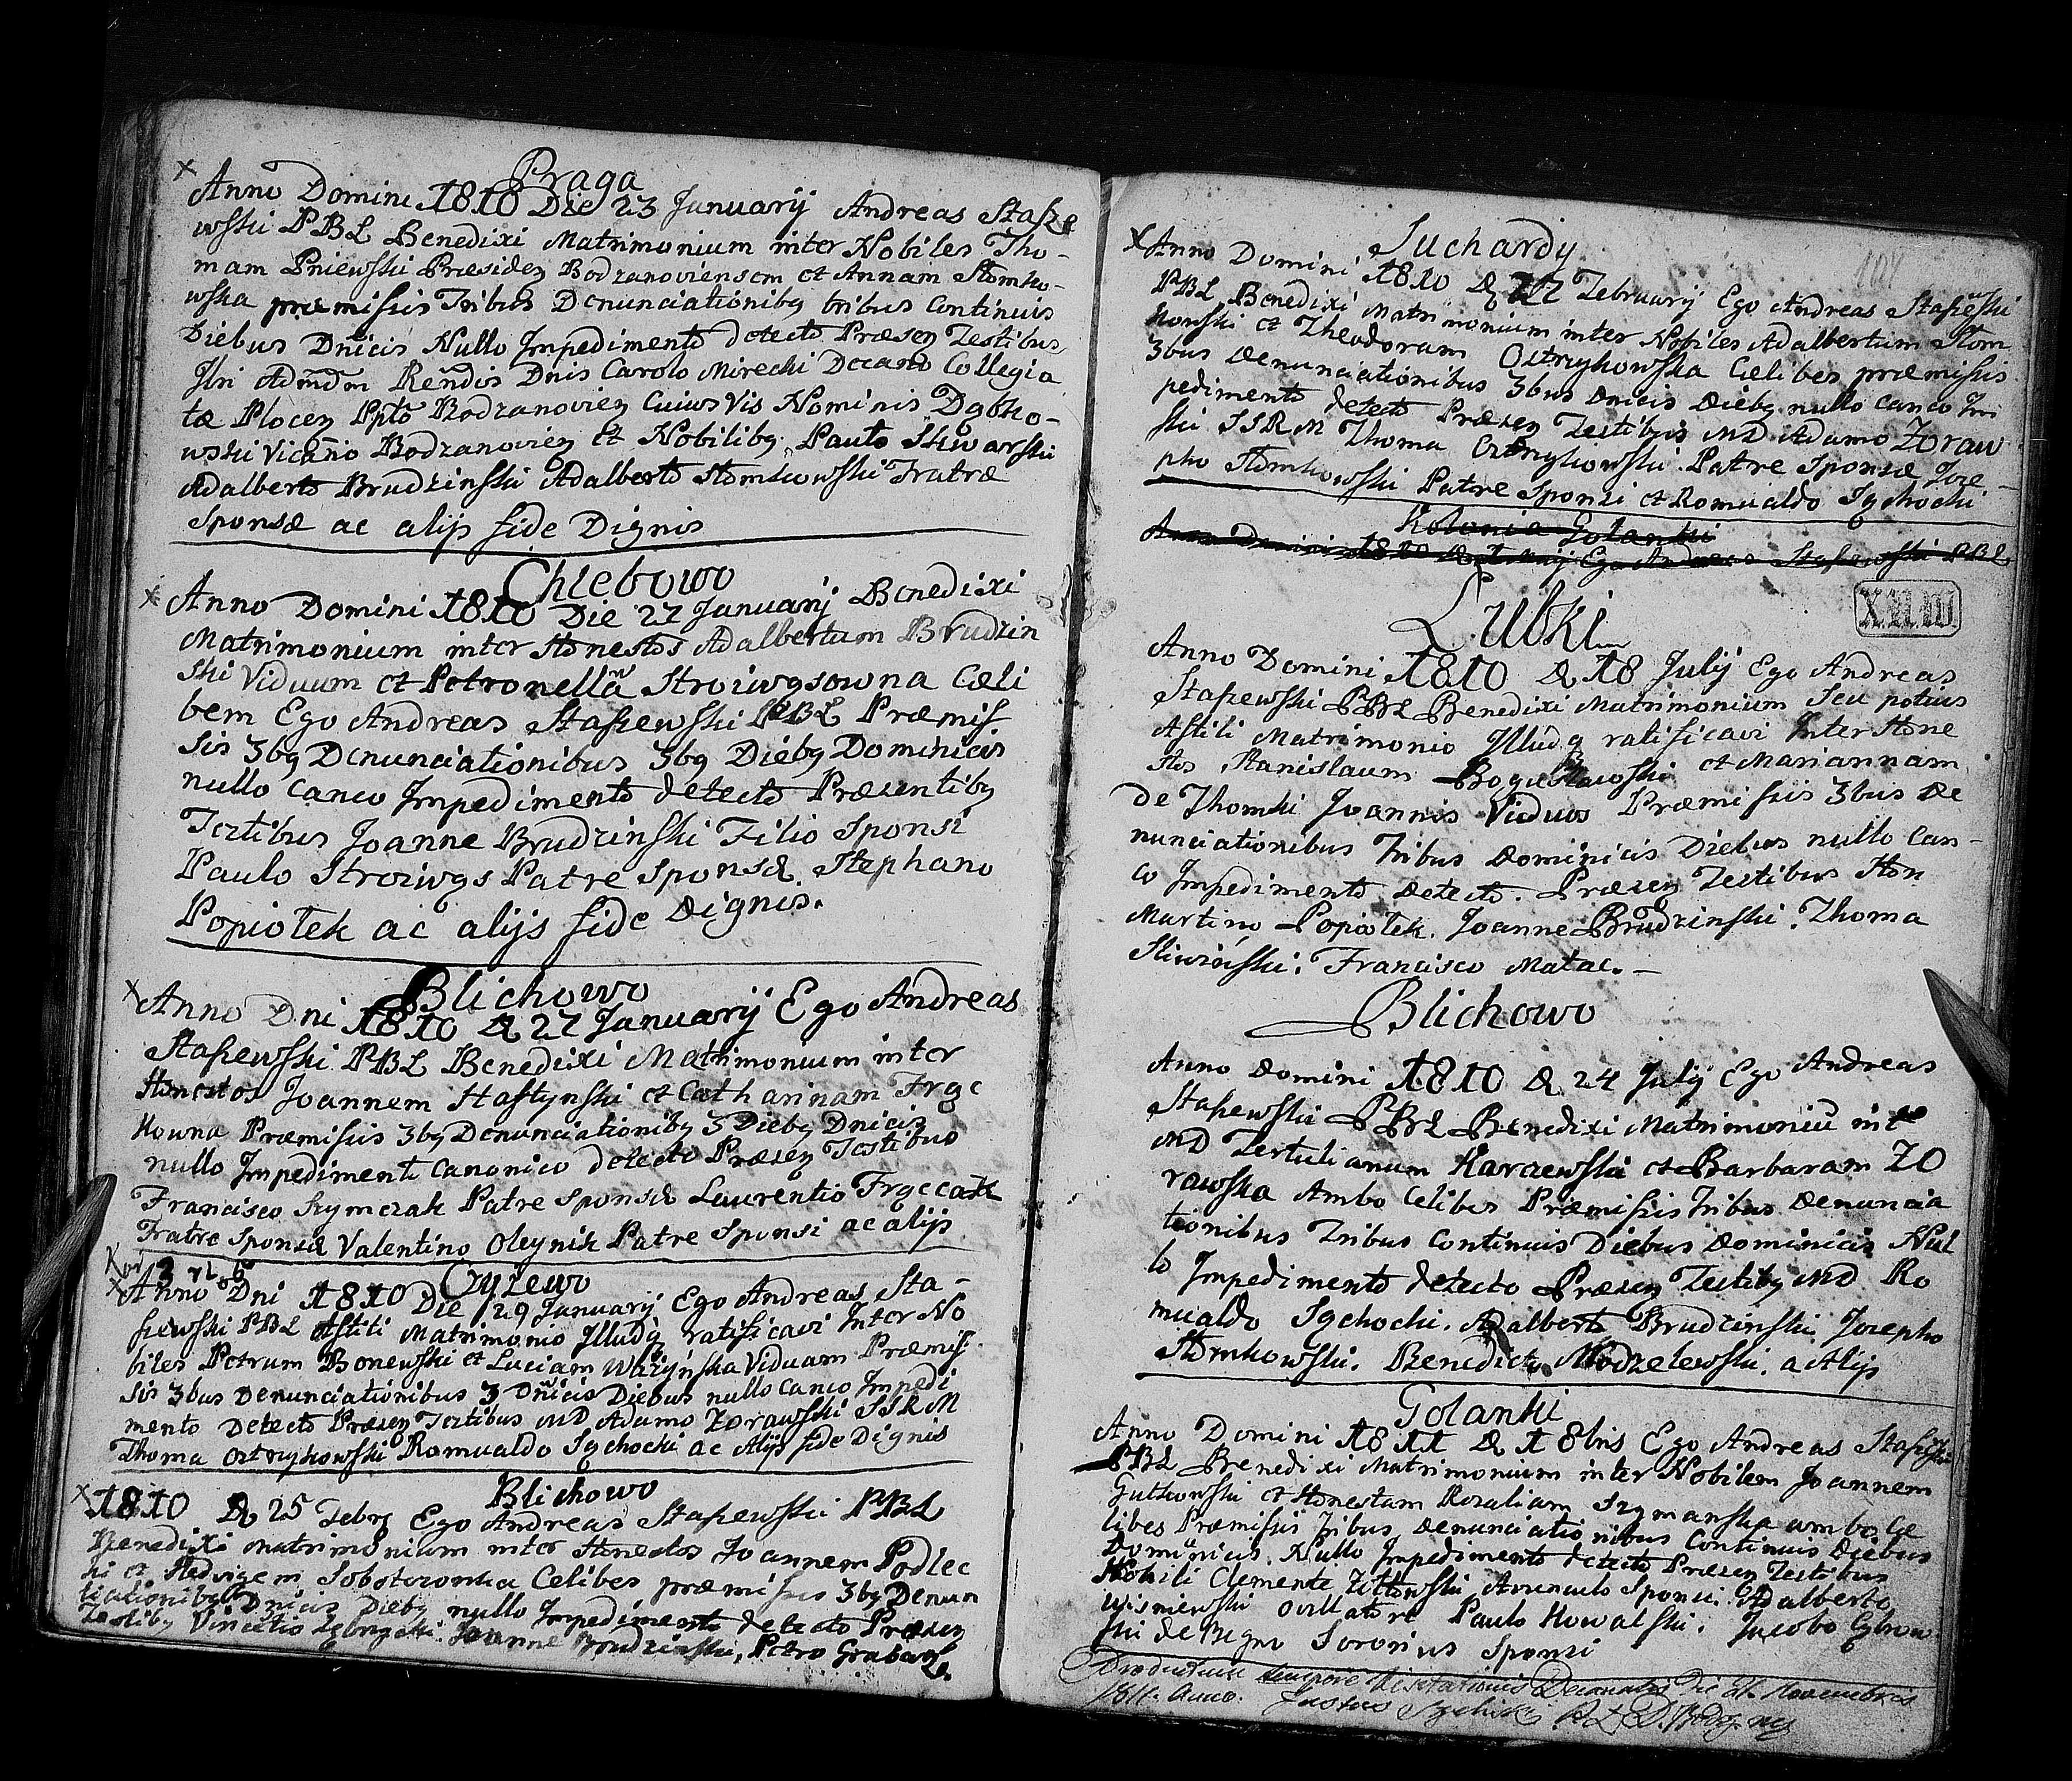 Praga
Anno Domini 1810 Die 23 Januarij Andreas Staſze
wſki PBL Benedixi Matrimonium inter Nobiles Tho-
mam Pniewſki Præsiden Bodzanoviensem et Annam Słomko-
wſka præmiſsis Tribus Denunciationibq tribus Continuis
Diebus Dnicis Nullo Impedimento detecto Præsen Testibus
Illri Admdm Rendis Dnis Carolo Mirecki Decano Collegia
tæ Plocen Ppto Bodzanovien Cuius Vis Nominis Dąbko-
wski Vicario Bodzanovien et Nobilibq. Paulo Skwarſki
Adalberto Brudzinſki Adalberto Słomkowſki Fratre
Sponsæ ac alijs fide Dignis
Chlebowo
Anno Domini 1810 Die 27 Januarij Benedixi
Matrimonium inter Honestos Adalbertum Brudzin
ski Viduum et Petronellam Stroiwąsowna Cæli
bem Ego Andreas Staſzewſki PBL Præmiſ
sis 3bq Denunciationibus 3bq Diebq Dominicis
nullo Canco Impedimento detecto Præsentibq
Testibus Joanne Brudzinſki Filio Sponsi
Paulo Stroiwąs Patre Sponsæ. Stephano
Popiołek ac alijs fide Dignis.
Blichowo
Anno Dni 1810 D 27 Januarij Ego Andreas
Staſzewſki PBL Benedixi Matrimonium inter
Honestos Joannem Staſtynſki et Catharinam Frąc
kowna Præmiſsis 3bq Denunciationibq 3 Diebq Dnicis
nullo Impedimento Canonico detecto Præsen Testibus
Francisco Szymczak Patre Sponsæ Laurentio Frąccak
Fratre Sponsæ Valentino Oleynik Patre Sponsi ac alijs
Cyżewo
Anno Dni 1810 Die 29 Januarij Ego Andreas Sta-
ſzewſki PBL Aſtiti Matrimonio Illudq ratificavi Inter No
biles Petrum Bonewſki et Luciam Ważyńſka Viduam Præmiſ
sis 3bus Denunciationibus 3 Dnicis Diebus nullo Canco Impedi
mento Detecto Præsen Testibus MD Adamo Żorawſki SSRM
Thoma Ostrykowſki Romualdo Sąchocki ac Alijs fide Dignis
Blichowo
1810 D 25 Febr Ego Andreas Staſzewſki PBL
Benedixi Matrimonium inter Honestos Joannem Podlec
ki et Hedvigem Sobotczonka Celibes præmiſsis 3bq Denun
tiationibq Dnicis Diebq nullo Impedimento detecto Præsen
Testibq Vincetio Joanne Brudzinſki, Petro Grabarz.
Suchardy
Anno Domini 1810 D 22 Februarij Ego Andreas Staſzewſki
PBL Benedixi Matrimonium inter Nobiles Adalbertum Słom
kowſki et Theodoram Ostrykowſka Cælibes præmiſsis
3bus Denunciationibus 3bus Dnicis Diebq nullo Canco Im
pedimento detecto Præsen Testibus MD Adamo Żoraw
ſki SSRM Thoma Ostrykowſki Patre Sponsæ Joze-
pho Słomkowſki Patre Sponsi et Romualdo Sąchocki
Kolonia Golanki
Anno Domini 1810 Ego Andreas Staſzewſki PBL
X.H.W.
Łubki
Anno Domini 1810 D 18 Julij Ego Andreas
Staſzewſki PBL Benedixi Matrimonium Seu potius
Aſtiti Matrimonio Illudq ratificavi Inter Hone
stos Stanislaum Boguſławſki et Mariannam
de Thomki Joannis Viduos Præmiſsis 3bus De
nunciationibus Tribus Dominicis Diebus nullo Can-
co Impedimento Detecto. Præsen Testibus Hon
Martino Popiołek. Joanne Brudzinſki. Thoma
Sliwińſki. Francisco Matac.
Blichowo
Anno Domini 1810 D 24 Julij Ego Andreas
Staſzewſki PBL Benedixi Matrimoniū inter
MD Tertulianum Karczewſki et Barbaram Żo
rawſka Ambo Celibes Præmiſsis Tribus Denuncia
tionibus Tribus Continuis Diebus Dominicis Nul
lo Impedimento detecto Præsen Testibq MD Ro
mualdo Sąchocki. Adalberto Brudzinſki. Jozepho
Słomkowſki. Benedicto Modzelewſki. a Alijs
Golanki
Anno Domini 1811 D 1 8bris Ego Andreas Staſzewſki
PBL Benedixi Matrimonium inter Nobilem Joannem
Gutkowſki et Honestam Rozaliam Szymanſka ambo Ce
libes Præmiſsis Tribus Denunciationibus Continuis Diebus
Dominicis. Nullo Impedimento detecto Præsen Testibus
Nobili Clemente Zittowſki Avunculo Sponsi. Adalberto
Wisniewſki Ovillatore Paulo Kowalſki. Jacobo
ſki de Begno Sororius Sponsi
Productum tempore Visitationis Decanalis Die 21 Novembris
1811. Anno.